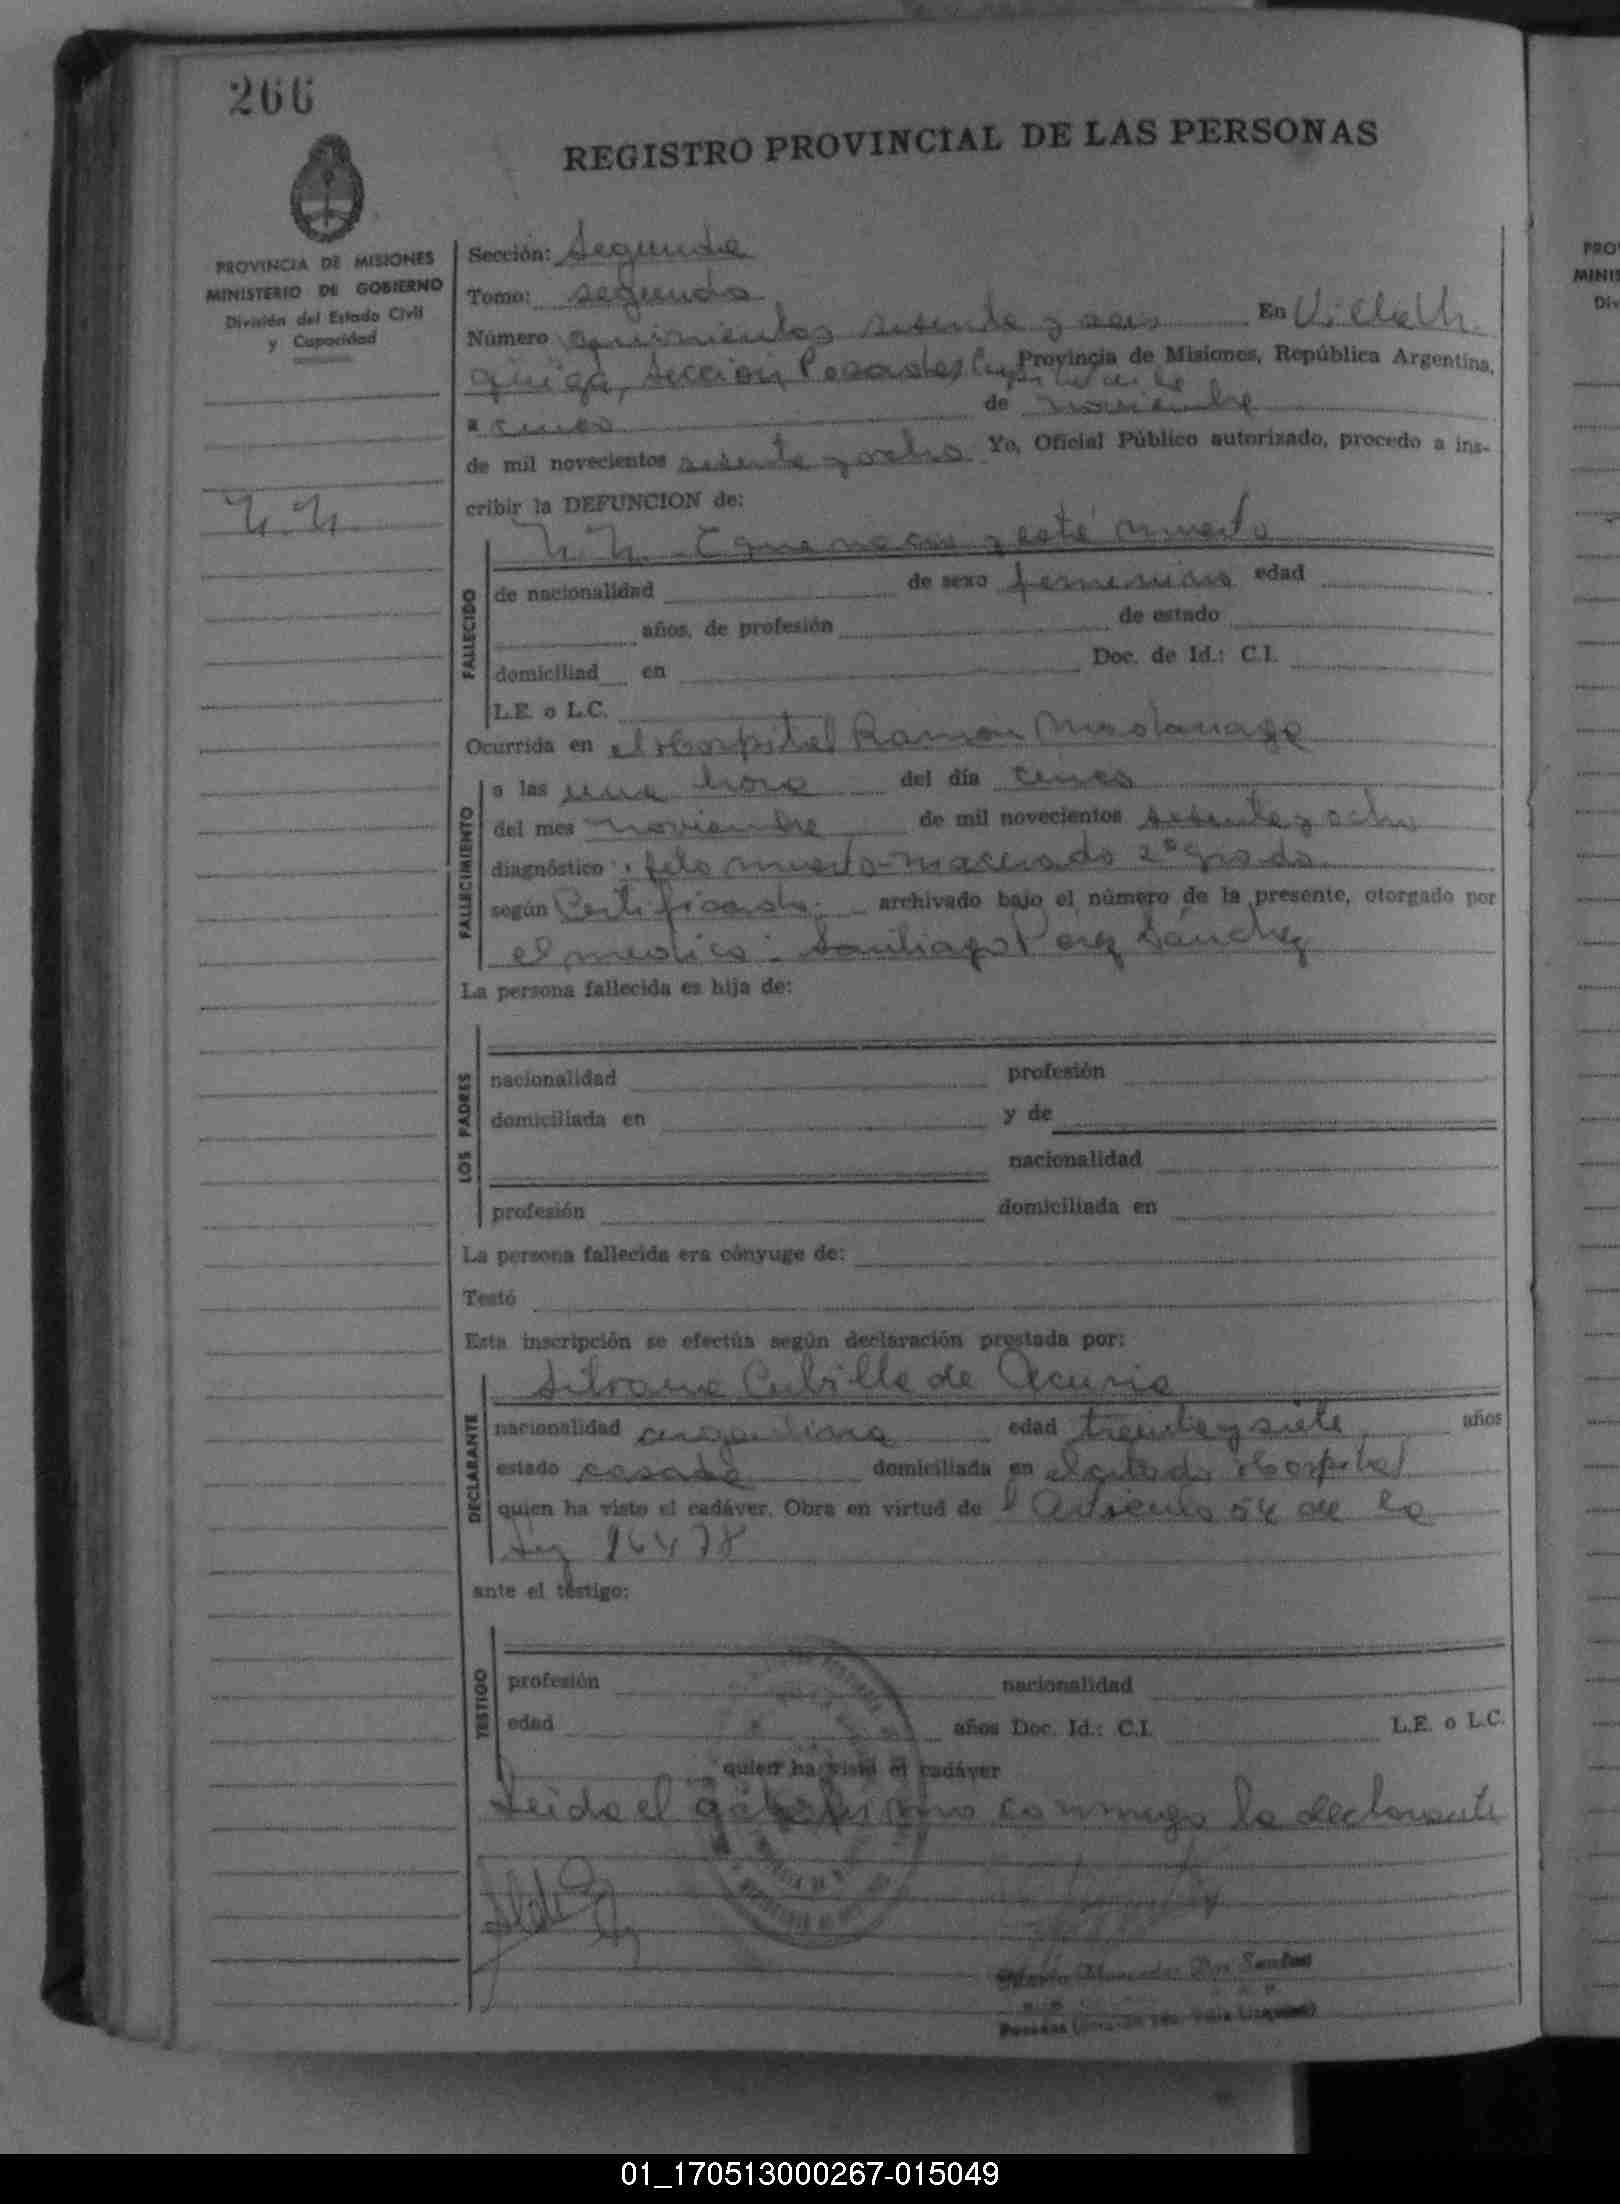 266
REGISTRO PROVINCIAL DE LAS PERSONAS
PROVINCIA DE MISIONES
MINISTERIO DE GOBIERNO
División del Estado Civil
y Capacidad
N.N.
Sección: Segunda
Tomo: segundo
Número quinientos setenta y seis En Villa U.
quiza, Sección Posadas Provincia de Misiones, República Argentina,
a cinco de noviembre
de mil novecientos setenta y ocho Yo, Oficial Público autorizado, procedo a ins-
cribir la DEFUNCION de:
FALLECIDO
N.N. que nació y está muerto
de nacionalidad de sexo femenino edad
años, de profesión de estado
domiciliad en Doc. de Id.: C.I.
L.E. o L.C.
Ocurrida en el Hospital Ramón Madariaga
FALLECIMIENTO
a las una hora del día cinco
del mes noviembre de mil novecientos setenta y ocho
diagnóstico: feto muerto-macerado 2º grado
según Certificado archivado bajo el número de la presente, otorgado por
el medico: Santiago Perez Sánchez
La persona fallecida es hija de:
LOS PADRES
nacionalidad profesión
domiciliada en y de
nacionalidad
profesión domiciliada en
La persona fallecida era cónyuge de:
Testó
Esta inscripción se efectúa según declaración prestada por:
DECLARANTE
Silvana Cubilla de Acuña
nacionalidad argentina edad treinta y siete años
estado casada domiciliada en el citado Hospital
quien ha visto el cadáver. Obra en virtud de l Artículo 54 de la
Ley 16478
ante el testigo:
TESTIGO
profesión nacionalidad
edad años Doc. Id.: C.I. L.E. o L.C.
quien ha visto el cadáver
Leida el acta firma conmigo la declarante
Dos Santos
01_170513000267-015049